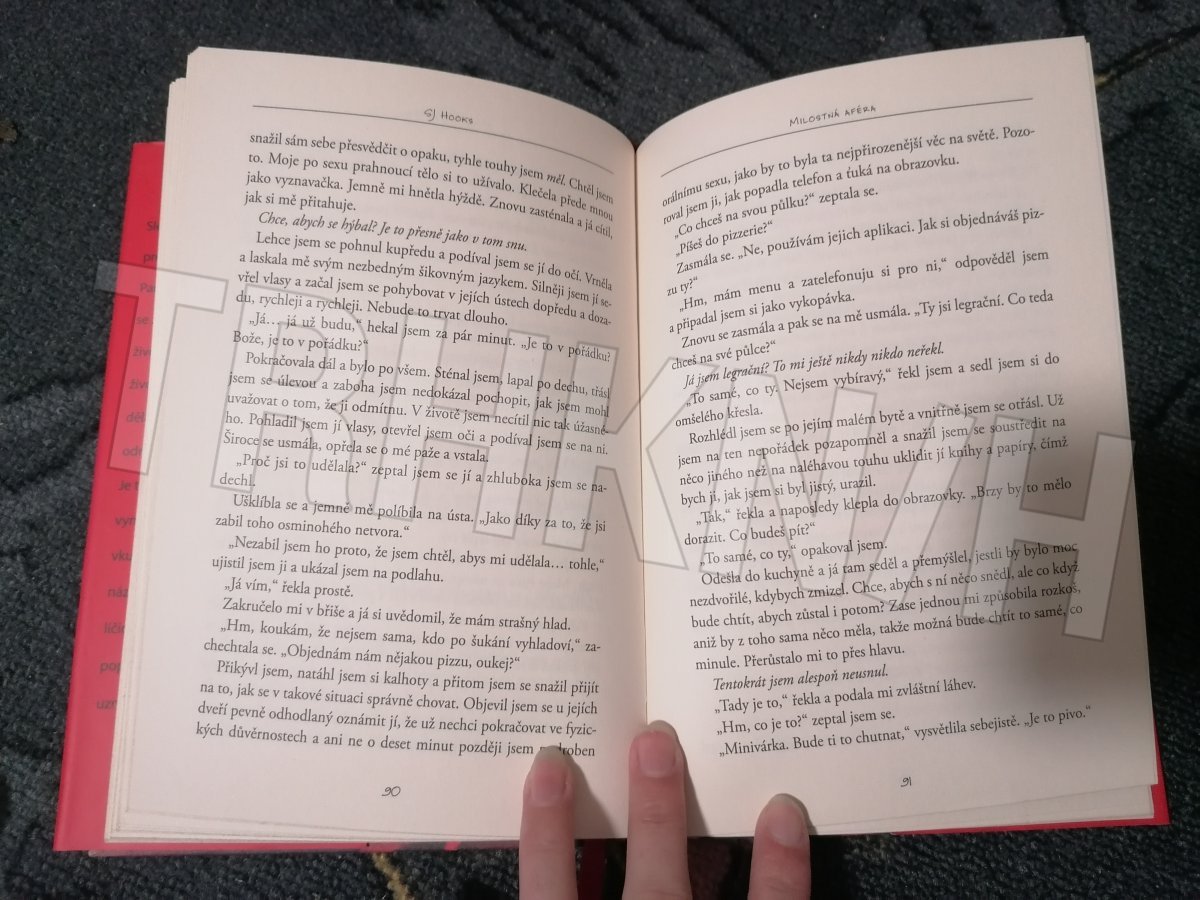 SJ HOOKS
snažil sám sebe přesvědčit o opaku, tyhle touhy jsem měl. Chtěl jsem
to. Moje po sexu prahnoucí tělo si to užívalo. Klečela přede mnou
jako vyznavačka. Jemně mi hnětla hýždě. Znovu zasténala a já cítil,
jak si mě přitahuje.
Chce, abych se hýbal? Je to přesně jako v tom snu.
Lehce jsem se pohnul kupředu a podíval jsem se jí do očí. Vrněla
a laskala mě svým nezbedným šikovným jazykem. Silněji jsem jí se-
vřel vlasy a začal jsem se pohybovat v jejích ústech dopředu a doza-
du, rychleji a rychleji. Nebude to trvat dlouho.
„Já… já už budu,“ hekal jsem za pár minut. „Je to v pořádku?
Bože, je to v pořádku?“
Pokračovala dál a bylo po všem. Sténal jsem, lapal po dechu, třásl
jsem se úlevou a zaboha jsem nedokázal pochopit, jak jsem mohl
uvažovat o tom, že ji odmítnu. V životě jsem necítil nic tak úžasné-
ho. Pohladil jsem jí vlasy, otevřel jsem oči a podíval jsem se na ni.
Široce se usmála, opřela se o mé paže a vstala.
„Proč jsi to udělala?“ zeptal jsem se jí a zhluboka jsem se na-
dechl.
Ušklíbla se a jemně mě políbila na ústa. „Jako díky za to, že jsi
zabil toho osminohého netvora.“
„Nezabil jsem ho proto, že jsem chtěl, abys mi udělala… tohle,“
ujistil jsem ji a ukázal jsem na podlahu.
„Já vím,“ řekla prostě.
Zakručelo mi v břiše a já si uvědomil, že mám strašný hlad.
„Hm, koukám, že nejsem sama, kdo po šukání vyhladoví,“ za-
chechtala se. „Objednám nám nějakou pizzu, oukej?“
Přikývl jsem, natáhl jsem si kalhoty a přitom jsem se snažil přijít
na to, jak se v takové situaci správně chovat. Objevil jsem se u jejích
dveří pevně odhodlaný oznámit jí, že už nechci pokračovat ve fyzic-
kých důvěrnostech a ani ne o deset minut později jsem podroben
90
MILOSTNÁ AFÉRA
orálnímu sexu, jako by to byla ta nejpřirozenější věc na světě. Pozo-
roval jsem ji, jak popadla telefon a ťuká na obrazovku.
„Co chceš na svou půlku?“ zeptala se.
„Píšeš do pizzerie?“
Zasmála se. „Ne, používám jejich aplikaci. Jak si objednáváš piz-
zu ty?“
„Hm, mám menu a zatelefonuju si pro ni,“ odpověděl jsem
a připadal jsem si jako vykopávka.
Znovu se zasmála a pak se na mě usmála. „Ty jsi legrační. Co teda
chceš na své půlce?“
Já jsem legrační? To mi ještě nikdy nikdo neřekl.
„To samé, co ty. Nejsem vybíravý,“ řekl jsem a sedl jsem si do
omšelého křesla.
Rozhlédl jsem se po jejím malém bytě a vnitřně jsem se otřásl. Už
jsem na ten nepořádek pozapomněl a snažil jsem se soustředit na
něco jiného než na naléhavou touhu uklidit jí knihy a papíry, čímž
bych ji, jak jsem si byl jistý, urazil.
„Tak,“ řekla a naposledy klepla do obrazovky. „Brzy by to mělo
dorazit. Co budeš pít?“
„To samé, co ty,“ opakoval jsem.
Odešla do kuchyně a já tam seděl a přemýšlel, jestli by bylo moc
nezdvořilé, kdybych zmizel. Chce, abych s ní něco snědl, ale co když
bude chtít, abych zůstal i potom? Zase jednou mi způsobila rozkoš,
aniž by z toho sama něco měla, takže možná bude chtít to samé, co
minule. Přerůstalo mi to přes hlavu.
Tentokrát jsem alespoň neusnul.
„Tady je to,“ řekla a podala mi zvláštní láhev.
„Hm, co je to?“ zeptal jsem se.
„Minivárka. Bude ti to chutnat,“ vysvětlila sebejistě. „Je to pivo.“
91
TRHKNIH